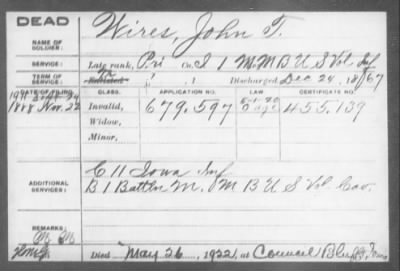 DEAD
NAME OF SOLDIER: Wires, John T.
SERVICE: Late rank, Pri Co. I 1 M.M.B U S Vol Inf
TERM OF SERVICE: Enlisted , 1 Discharged Dec 24, 1867
DATE OF FILING. CLASS. APPLICATION NO. LAW CERTIFICATE NO.
1888 Nov. 22 Invalid, 679.597 455.139
Widow,
Minor,
C 11 Iowa Inf
ADDITIONAL SERVICES: B 1 Battln M. M B U S Vol Cav.
REMARKS:
Died May 26, 1922, at Council Bluffs, Iowa